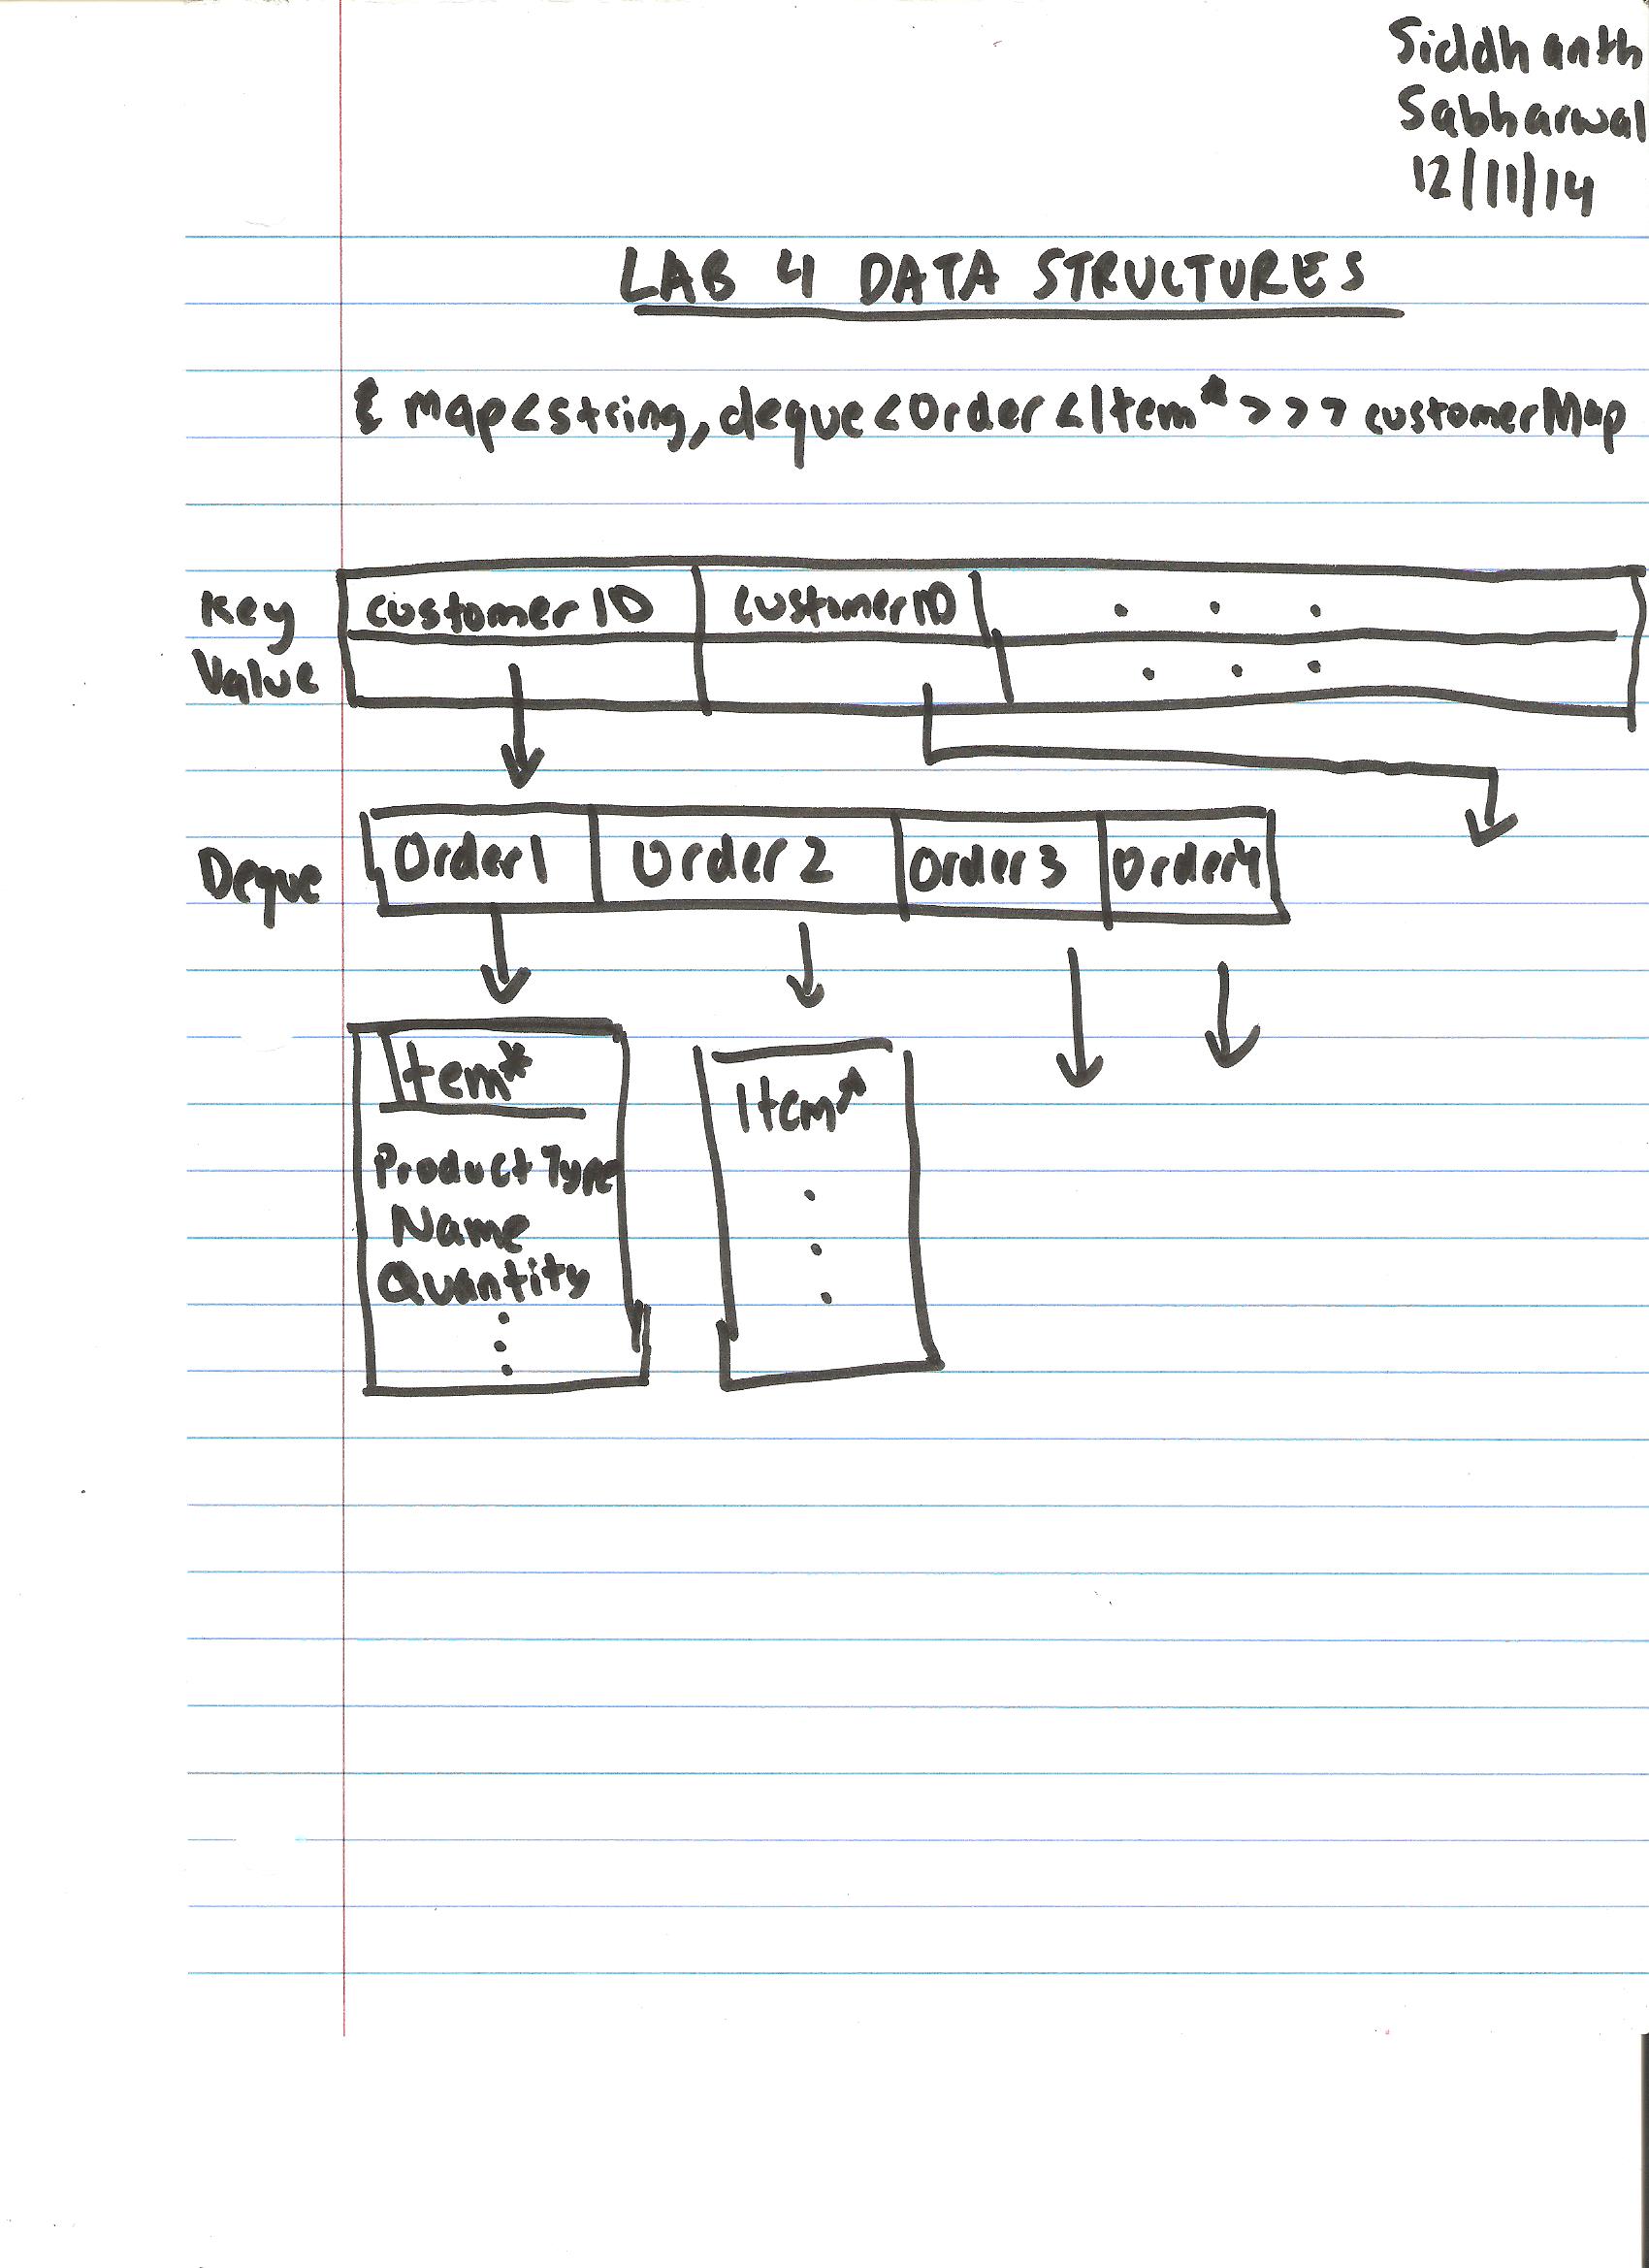 Siddhanth
Sabharwal
12/11/14
LAB 4 DATA STRUCTURES
map<string, deque<Order<Item*>>> customerMap
Key customerID customerID . . .
Value . . .
Deque Order1 Order 2 Order 3 Order4
Item* Item*
Product Type
Name
Quantity